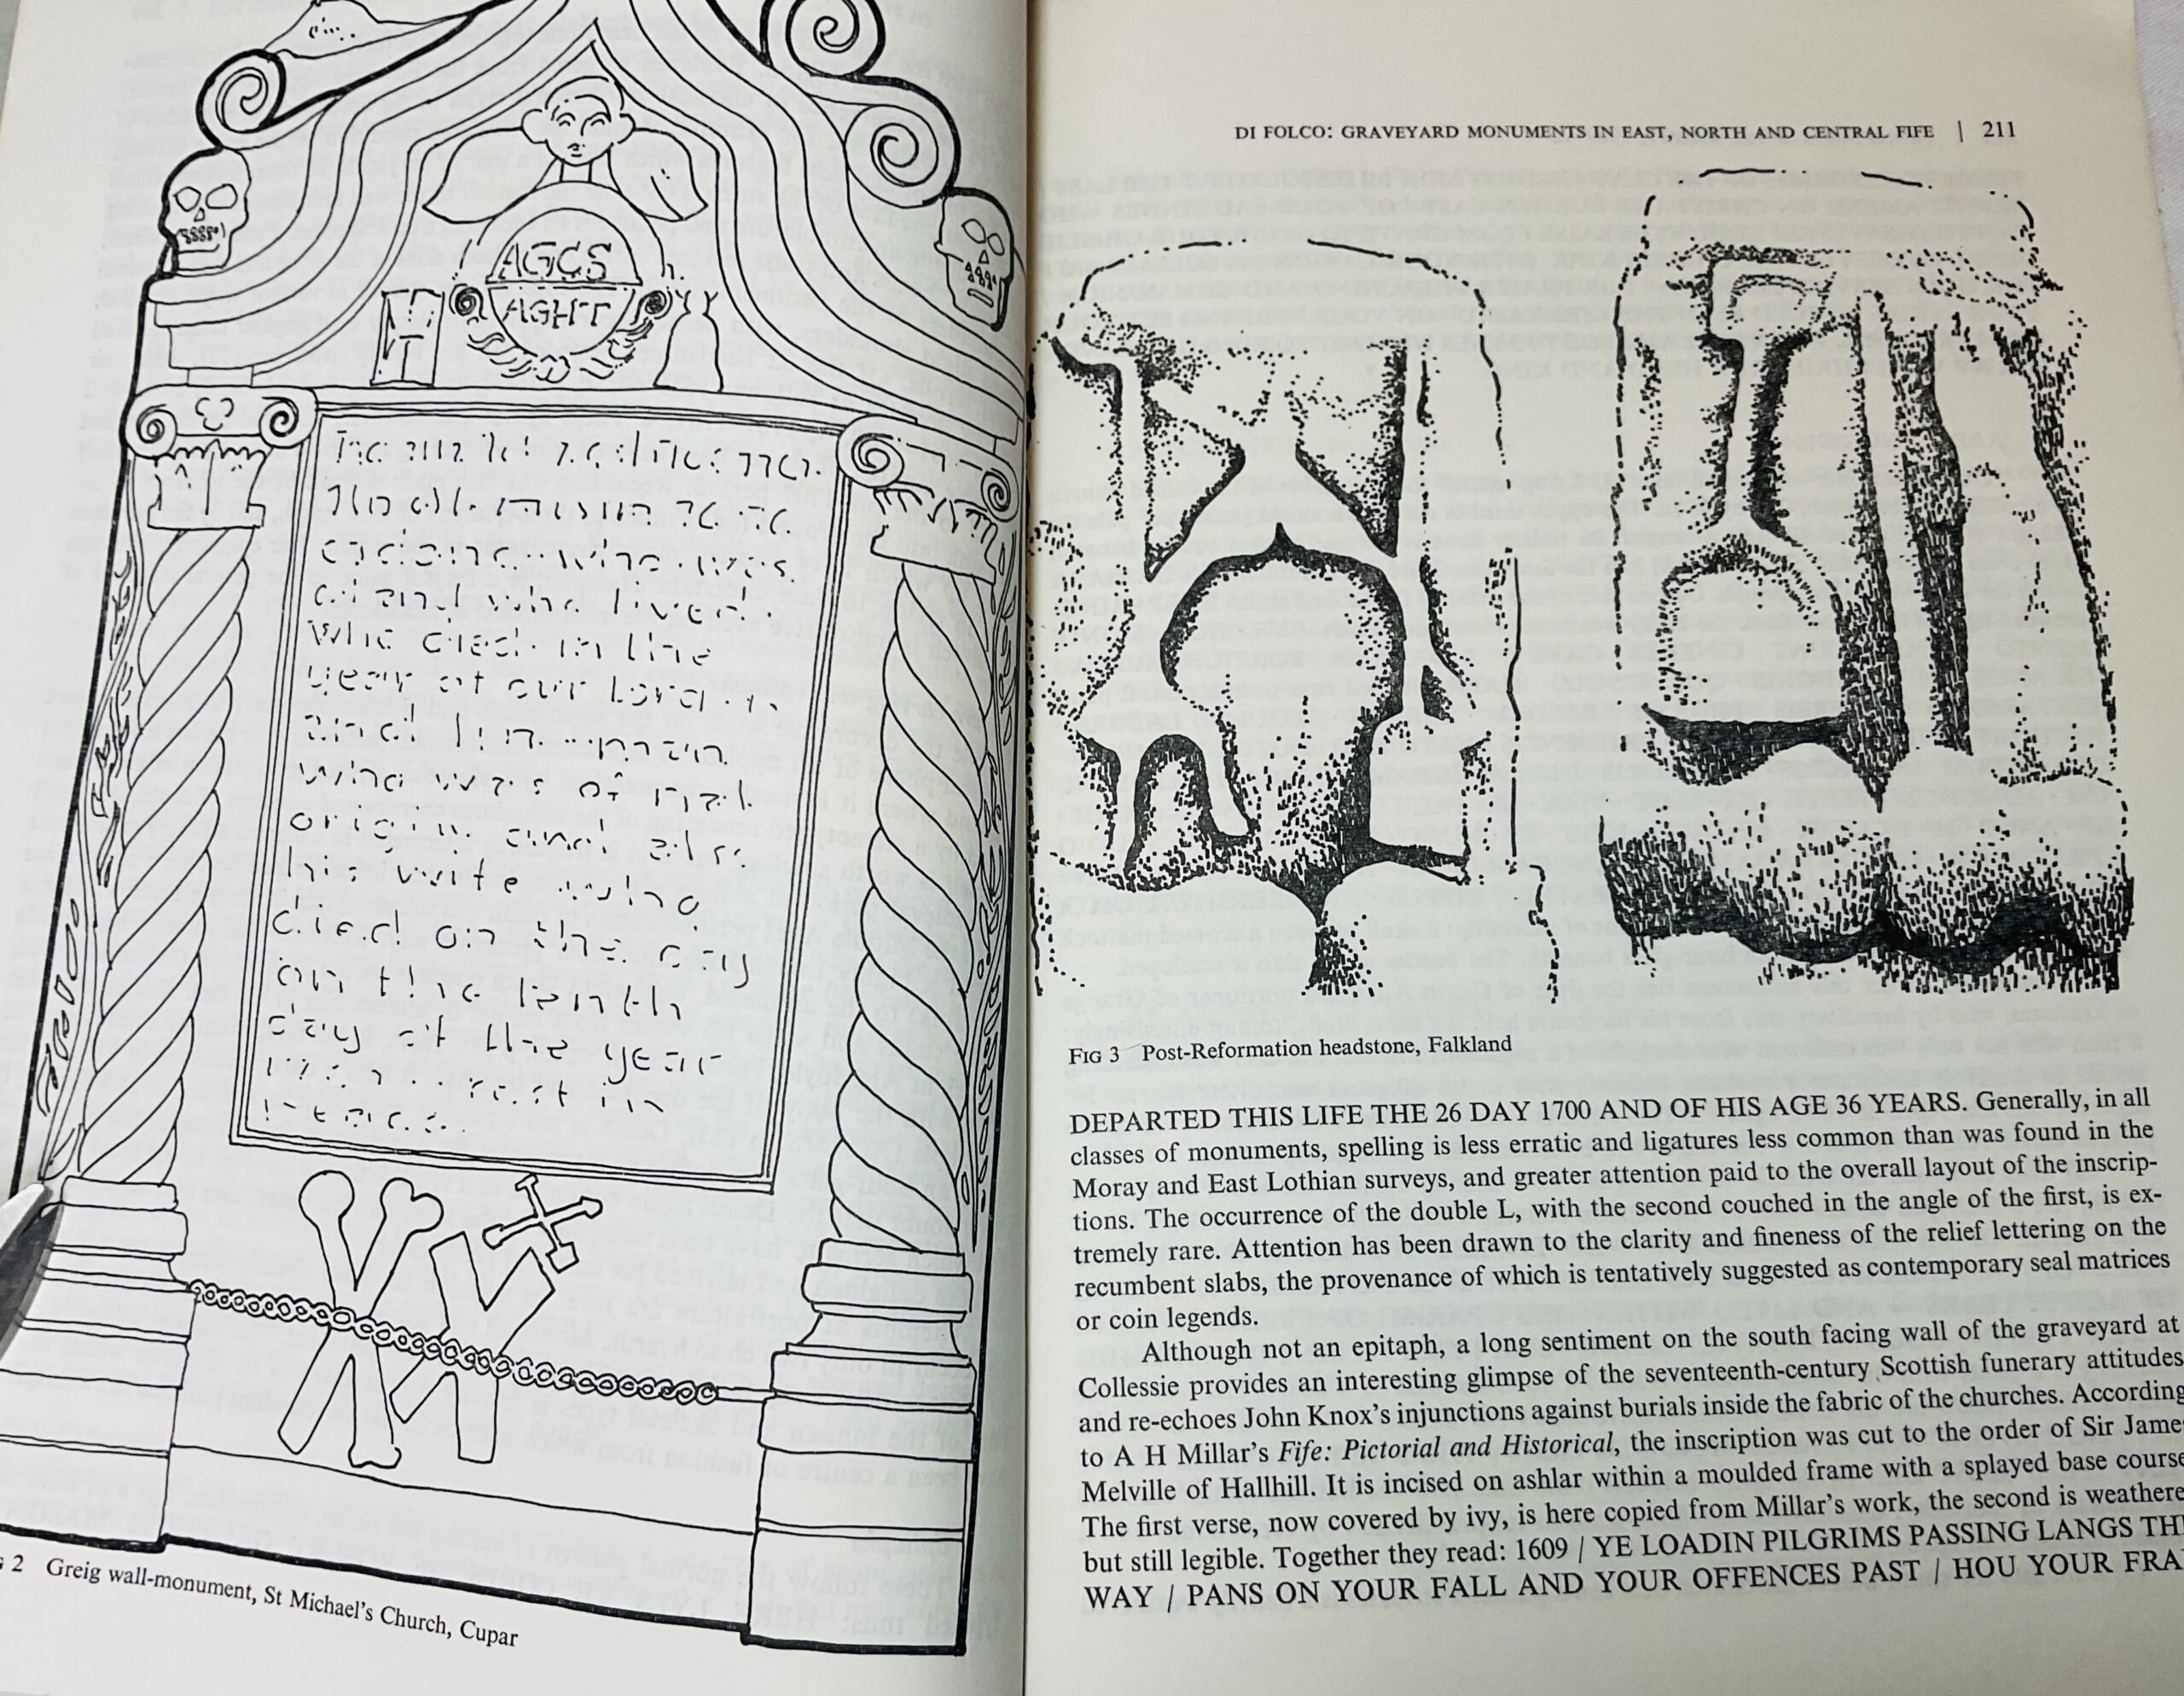 AGCS
AGHT
and who lived
who died in the
year of our Lord
who was of
origin and also
his wife who
died on the day
on the tenth
day of the year
rest in
2 Greig wall-monument, St Michael’s Church, Cupar
DI FOLCO: GRAVEYARD MONUMENTS IN EAST, NORTH AND CENTRAL FIFE | 211
FIG 3 Post-Reformation headstone, Falkland
DEPARTED THIS LIFE THE 26 DAY 1700 AND OF HIS AGE 36 YEARS. Generally, in all
classes of monuments, spelling is less erratic and ligatures less common than was found in the
Moray and East Lothian surveys, and greater attention paid to the overall layout of the inscrip-
tions. The occurrence of the double L, with the second couched in the angle of the first, is ex-
tremely rare. Attention has been drawn to the clarity and fineness of the relief lettering on the
recumbent slabs, the provenance of which is tentatively suggested as contemporary seal matrices
or coin legends.
Although not an epitaph, a long sentiment on the south facing wall of the graveyard at
Collessie provides an interesting glimpse of the seventeenth-century Scottish funerary attitudes
and re-echoes John Knox’s injunctions against burials inside the fabric of the churches. According
to A H Millar’s Fife: Pictorial and Historical, the inscription was cut to the order of Sir Jame
Melville of Hallhill. It is incised on ashlar within a moulded frame with a splayed base course
The first verse, now covered by ivy, is here copied from Millar’s work, the second is weathere
but still legible. Together they read: 1609 / YE LOADIN PILGRIMS PASSING LANGS TH
WAY / PANS ON YOUR FALL AND YOUR OFFENCES PAST / HOU YOUR FRA